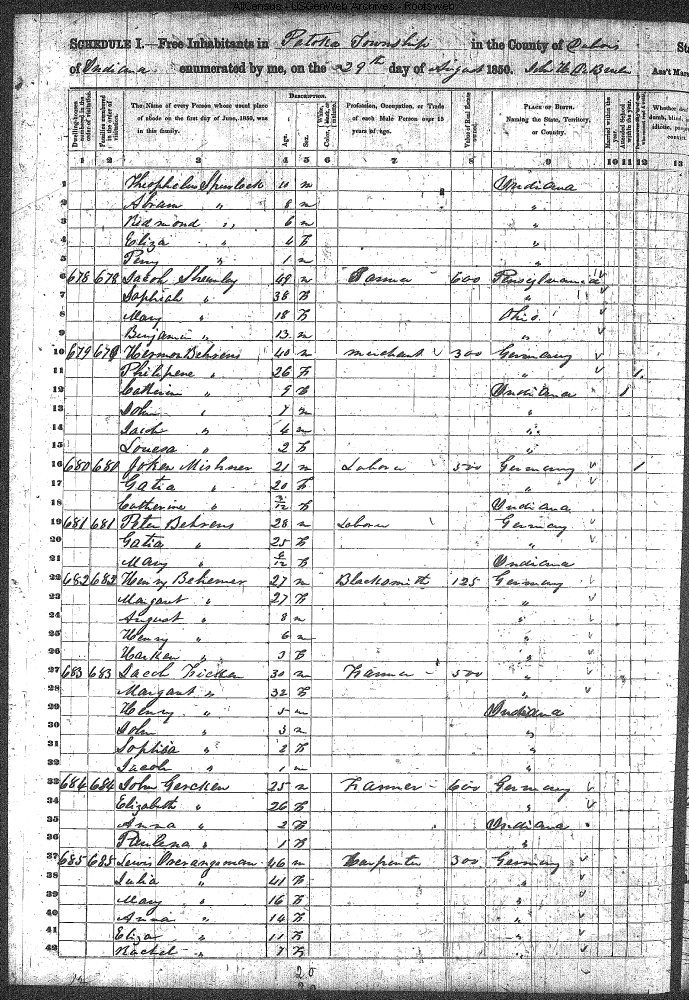 AllCensus - USGenWeb Archives - Rootsweb
SCHEDULE I.—Free Inhabitants in Patoka Township in the County of Dubois
of Indiana enumerated by me, on the 29th day of August 1850.
DESCRIPTION.
Dwelling-houses numbered in the order of visitation.
Families numbered in the order of visitation.
The Name of every Person whose usual place of abode on the first day of June, 1850, was in this family.
Age.
Sex.
Color
Profession, Occupation, or Trade of each Male Person over 15 years of age.
Value of Real Estate owned.
PLACE OF BIRTH. Naming the State, Territory, or Country.
Married within the year.
Attended School within the year.
1 2 3 4 5 6 7 8 9 10 11 12 13
1 Theophelus Spurlock 10 m Indiana
2 Abram " 8 m "
3 Redmond " 6 m "
4 Eliza " 4 F "
5 Perry " 1 m "
6 678 678 Jacob Shumley 49 m Farmer 600 Pensylvania
7 Sophiah " 38 F "
8 Mary " 18 F Ohio
9 Benjamin " 13 m "
10 679 679 Hermon Behrens 40 m merchant 300 Germany
11 Philipene " 26 F " 1
12 Catherin " 9 F Indiana 1
13 John " 7 m "
14 Jacob " 4 m "
15 Louesa " 2 F "
16 680 680 Joken Mishner 21 m Laborer 500 Germany 1
17 Gatia " 20 F "
18 Catherine " 3/12 F Indiana
19 681 681 Peter Behrens 28 m Laborer Germany
20 Gatia " 25 F "
21 Mary " 6/12 F Indiana
22 682 682 Henry Behemer 27 m Blacksmith 125 Germany
23 Margaret " 27 F "
24 August " 8 m "
25 Henry " 6 m "
26 Harken " 3 F "
27 683 683 Jacob Fricken 30 m Farmer 500 "
28 Margaret " 32 F "
29 Henry " 5 m Indiana
30 John " 3 m "
31 Sophia " 2 F "
32 Jacob " 1 m "
33 684 684 John Gercken 25 m Farmer 600 Germany
34 Elizabeth " 26 F "
35 Anna " 2 F Indiana
36 Paulena " 1 F "
37 685 685 Lewis Overangsman 46 m Carpenter 300 Germany
38 Julia " 41 F "
39 Mary " 16 F "
40 Anna " 14 F "
41 Eliza " 11 F "
42 Rachel " 7 F "
20